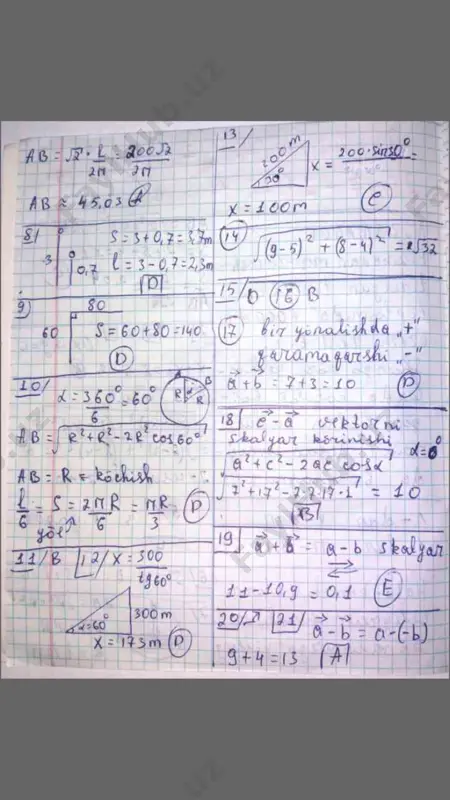 AB = √2 · l/2π = 200√2/2π
AB ≈ 45,03 A
8) S = 3 + 0,7 = 3,7 m
3 0,7 l = 3 - 0,7 = 2,3 m
D
9) 80
60 S = 60 + 80 = 140
D
10/ α = 360°/6 = 60° A B R α R
AB = √R² + R² - 2R² cos60°
AB = R = köchish
l/6 = S = 2πR/6 = πR/3 D
yöl
11/ B 12/ X = 300/tg60°
α=60° 300 m
X = 173 m D
13/ 200 m X = 200·sin30° =
30°
X = 100 m C
14 √(9-5)² + (8-4)² = √32
15/ D 16 B
17 bir yönalishda „+"
qarama qarshi „-"
a + b = 7 + 3 = 10 D
18 c - a vektorni
skalyar körinishi
√a² + c² - 2ac cosα α = 0°
√7² + 17² - 2·7·17·1 = 10
B
19 a + b = a - b skalyar
11 - 10,9 = 0,1 E
20/ 21/ a - b = a - (-b)
9 + 4 = 13 A
FayHub.uz